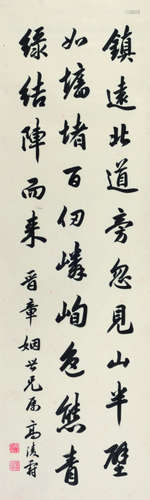 鎮遠北道旁忽見山半壁
如墻堵百仞嶙峋色熊青
綠結陣而来
晋章姻世兄属高凌霨